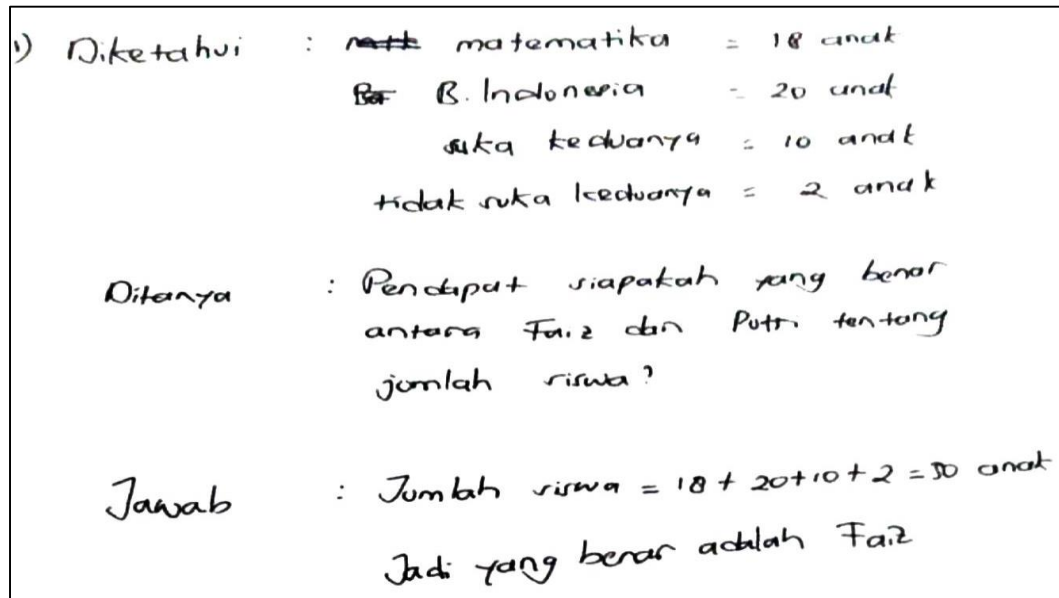 1) Diketahui : matematika = 18 anak
B. Indonesia = 20 anak
suka keduanya = 10 anak
tidak suka keduanya = 2 anak
Ditanya : Pendapat siapakah yang benar
antara Faiz dan Putri tentang
jumlah siswa?
Jawab : Jumlah siswa = 18 + 20 + 10 + 2 = 50 anak
Jadi yang benar adalah Faiz